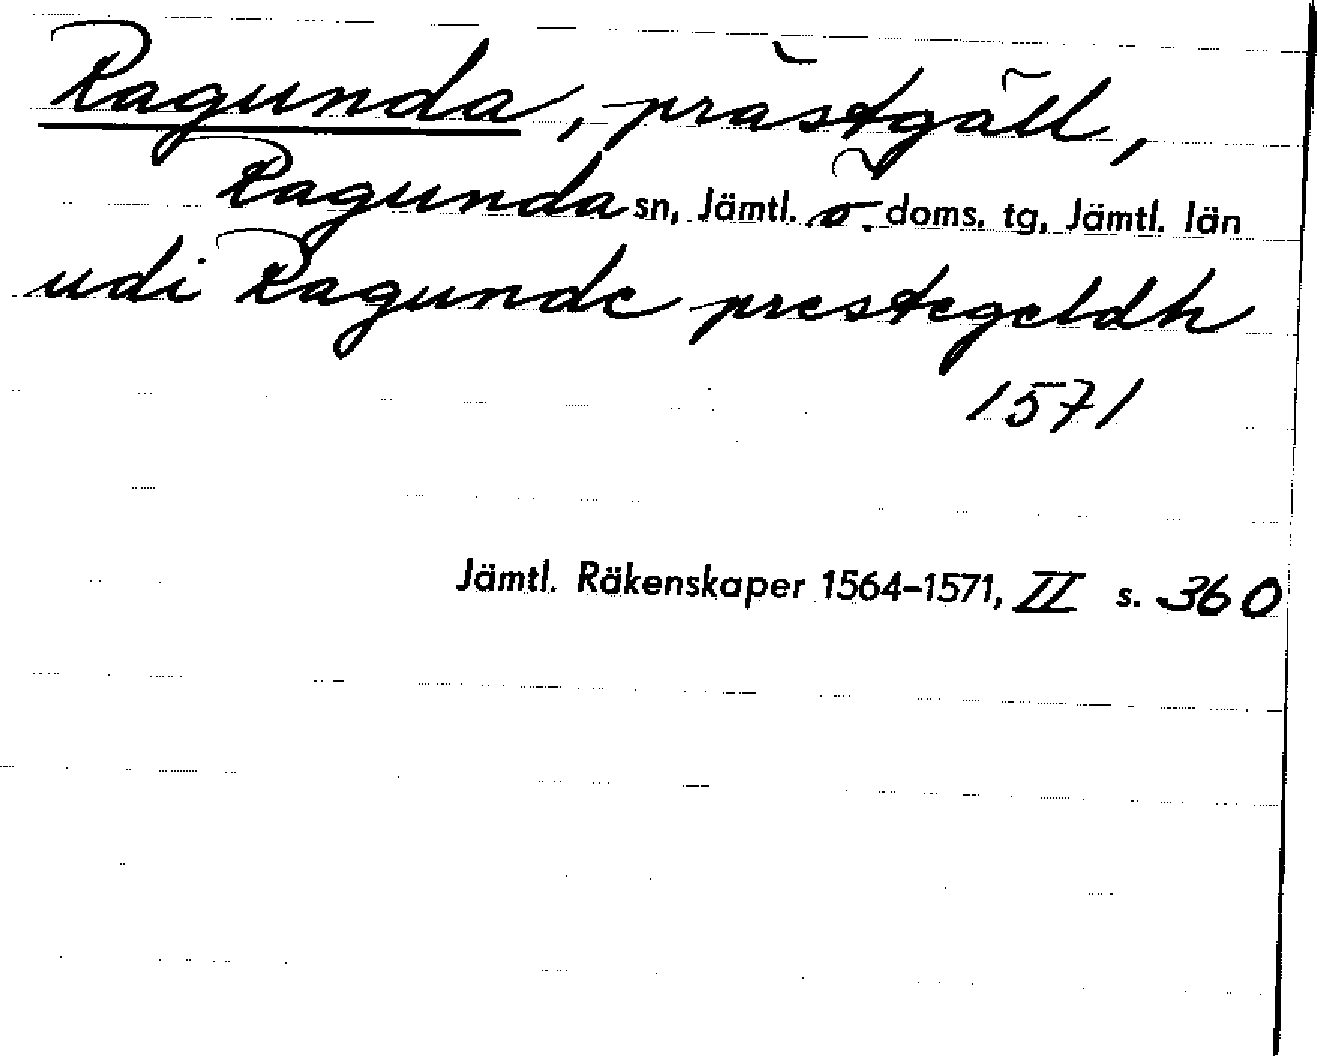 Ragunda, prästgäll,
Ragunda sn, Jämtl. ö. doms. tg, Jämtl. län
udi Ragunde prestegeldh
1571
Jämtl. Räkenskaper 1564–1571, II s. 360